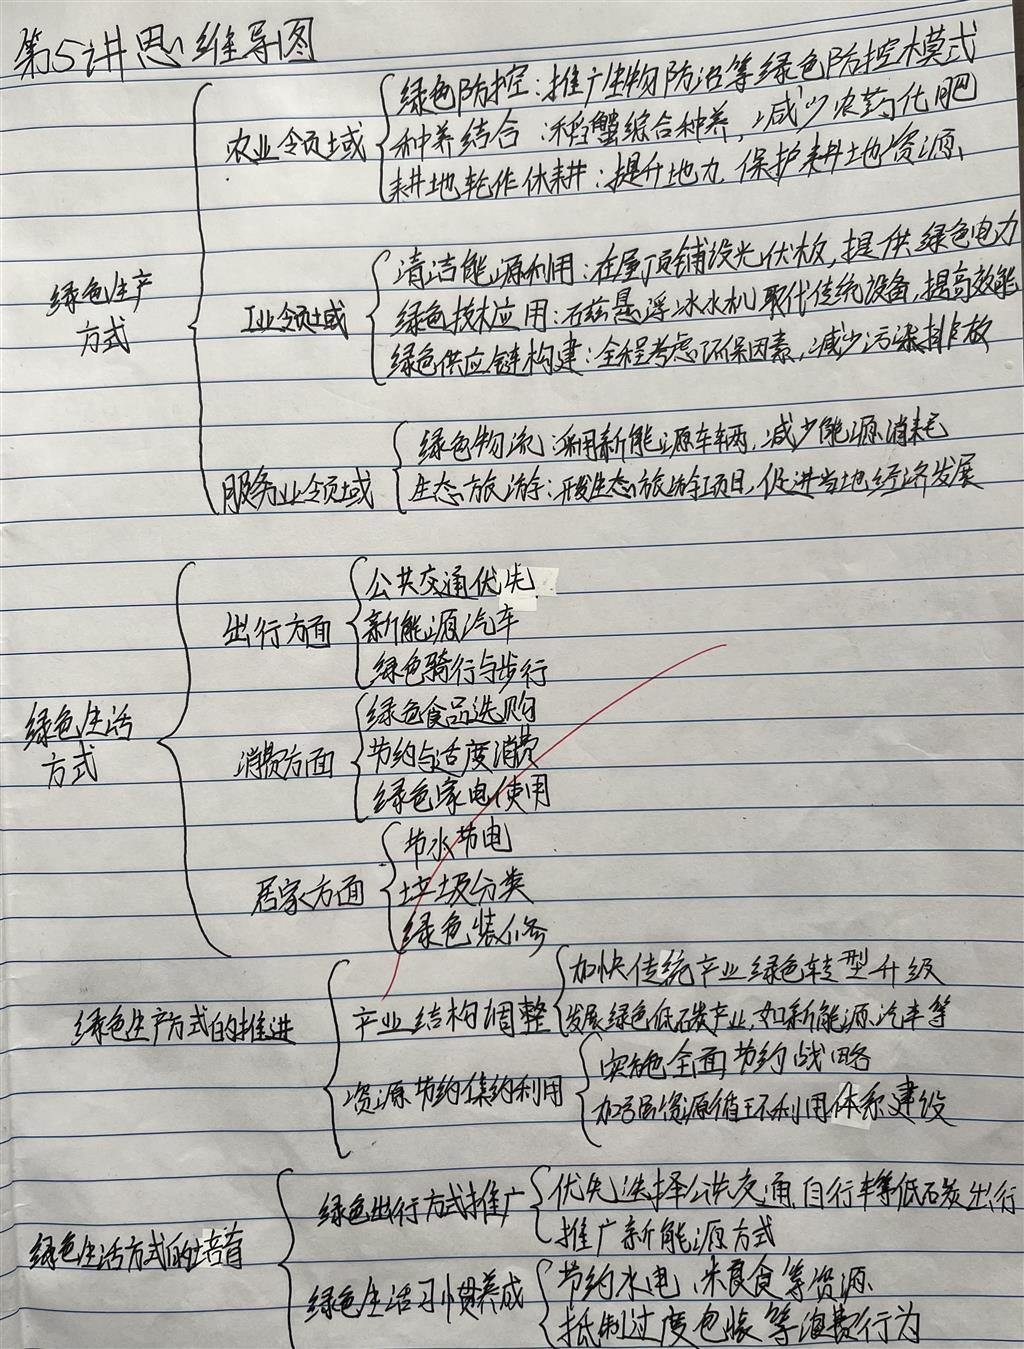 第5讲思维导图
绿色防控：推广生物防治等绿色防控模式
农业领域
种养结合：稻蟹综合种养，减少农药化肥
耕地轮作休耕：提升地力，保护耕地资源、
绿色生产
方式
清洁能源利用：在屋顶铺设光伏板，提供绿色电力
工业领域
绿色技术应用：磁悬浮冰水机取代传统设备，提高效能
绿色供应链构建：全程考虑环保因素，减少污染排放
绿色物流：采用新能源车辆，减少能源消耗
服务业领域
生态旅游：开发生态旅游项目，促进当地经济发展
公共交通优先
出行方面
新能源汽车
绿色骑行与步行
绿色生活
方式
绿色食品选购
消费方面
节约与适度消费
绿色家电使用
节水节电
居家方面
垃圾分类
绿色装修
绿色生产方式的推进
产业结构调整
加快传统产业绿色转型升级
发展绿色低碳产业，如新能源汽车等
资源节约集约利用
实施全面节约战略
加强资源循环利用体系建设
绿色生活方式的培育
绿色出行方式推广
优先选择公共交通、自行车等低碳出行
推广新能源方式
绿色生活习惯养成
节约水电、米食等资源
抵制过度包装等浪费行为